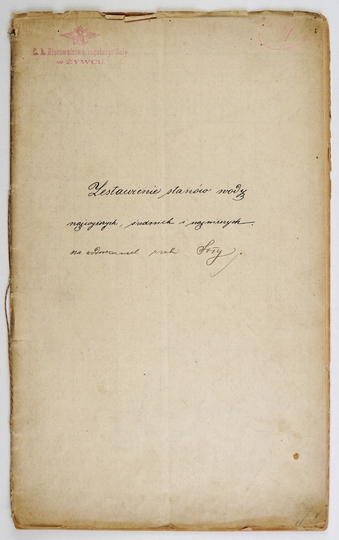 C. k. Kierownictwo regulacyi Soły
w ŻYWCU
Zestawienie stanów wody
najwyższych, średnich i najniższych
na wodowskazach rzeki Soły.